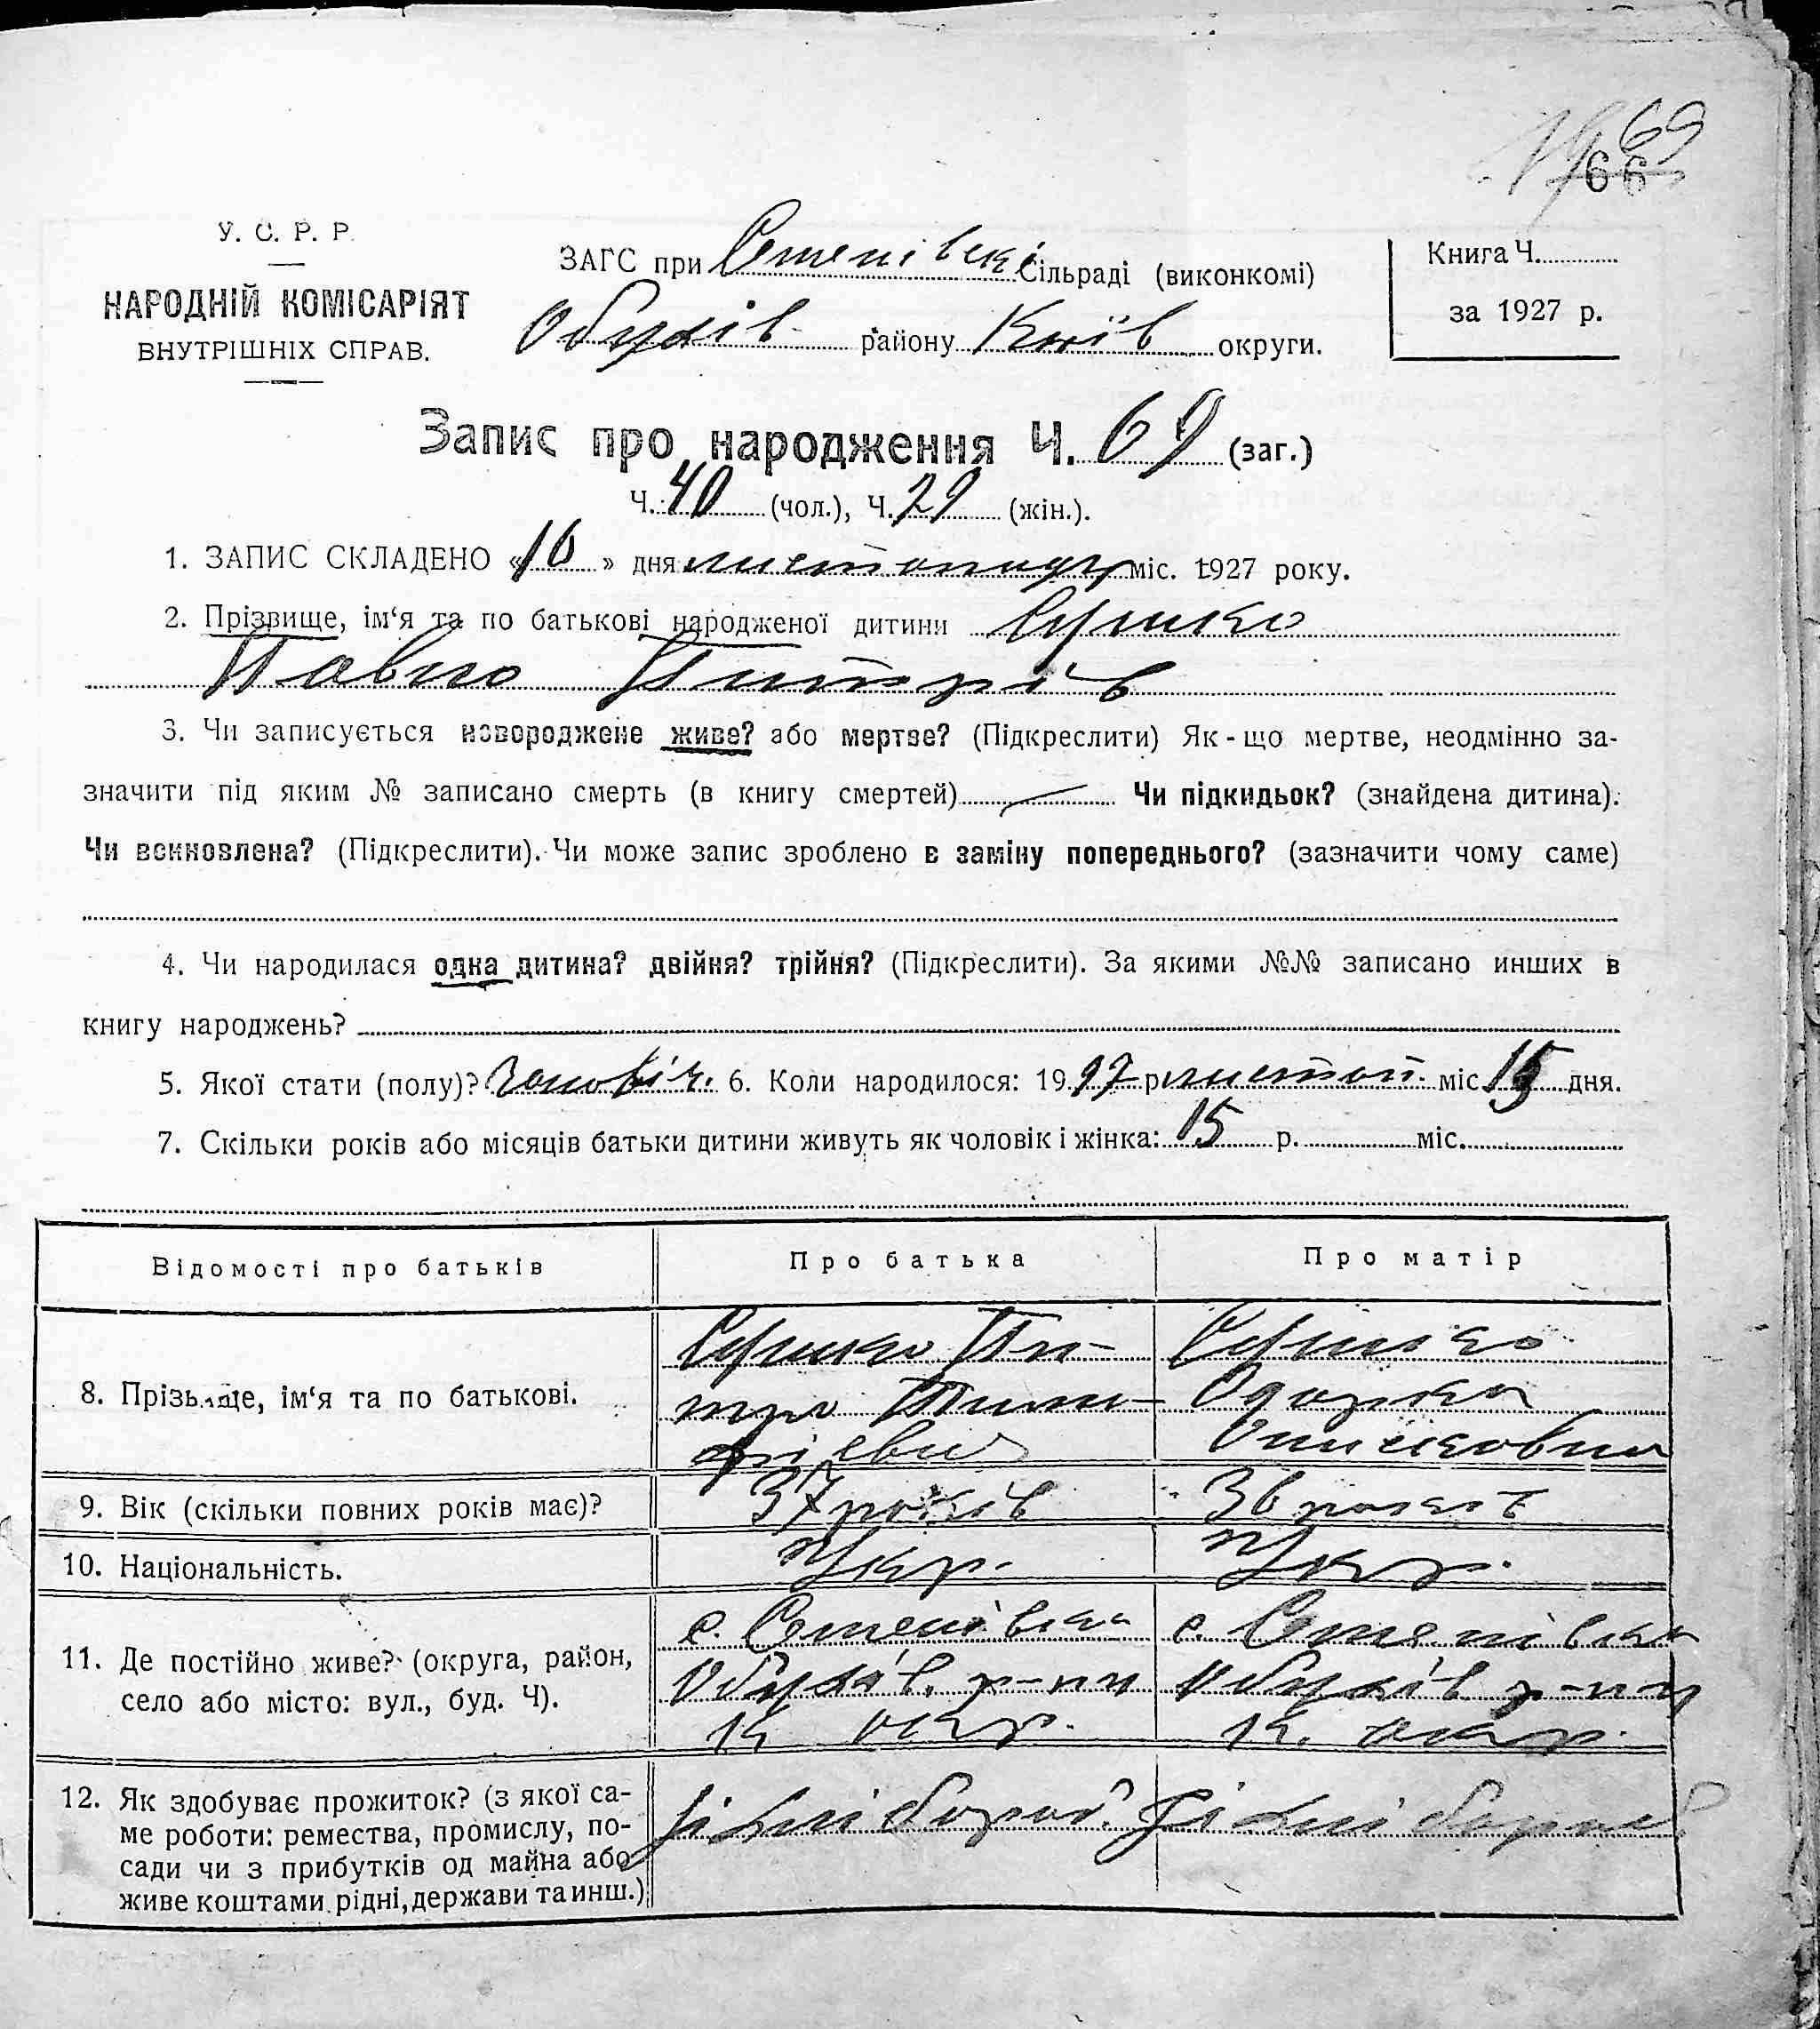 69
66
У. С. Р. Р.
НАРОДНІЙ КОМІСАРІЯТ
ВНУТРІШНІХ СПРАВ.
ЗАГС при Семенівскі Сільраді (виконкомі)
Обухів району Київ округи.
Книга Ч.
за 1927 р.
Запис про народження Ч. 69 (заг.)
Ч. 40 (чол.), Ч. 29 (жін.).
1. ЗАПИС СКЛАДЕНО «16» дня листопаду міс. 1927 року.
2. Прізвище, ім‘я та по батькові народженої дитини Сушко
Павло Питрів
3. Чи записується новороджене живе? або мертве? (Підкреслити) Як-що мертве, неодмінно за-
значити під яким № записано смерть (в книгу смертей) Чи підкидьок? (знайдена дитина).
Чи всиновлена? (Підкреслити). Чи може запис зроблено в заміну попереднього? (зазначити чому саме)
4. Чи народилася одна дитина? двійня? трійня? (Підкреслити). За якими №№ записано инших в
книгу народжень?
5. Якої стати (полу)? Чоловіч. 6. Коли народилося: 1927 р листоп. міс 15 дня.
7. Скільки років або місяців батьки дитини живуть як чоловік і жінка: 15 р. міс.
Відомості про батьків Про батька Про матір
8. Прізвище, ім‘я та по батькові. Сушко Пи-
тро Тимо-
фієвич
Сушко
Одарка
9. Вік (скільки повних років має)? 37 років 36 років
10. Національність. Укр. Укр.
11. Де постійно живе? (округа, район,
село або місто: вул., буд. Ч).
с. Семенівка
Обухів. р-ну
К окр.
с. Семенівка
Обухів р-ну
К. окр.
12. Як здобуває прожиток? (з якої са-
ме роботи: ремества, промислу, по-
сади чи з прибутків од майна або
живе коштами рідні, держави та инш.)